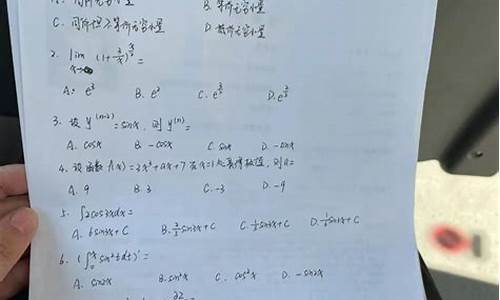 A. 同阶无穷小量 B. 等价无穷小量
C. 同阶但不等价无穷小量 D. 高阶无穷小量
2. lim (1+ )
A. e³ B. e² C. e D. e
3. 设 y⁽ⁿ⁻²⁾ = sinx, 则 y⁽ⁿ⁾ =
A. cosx B. -cosx C. sinx D. -sinx
4. 设函数 f(x)=2x³+ax+7在x=1处取得极值, 则a=
A. 9 B. 3 C. -3 D. -9
5. ∫2cos3xdx=
A. 6sin3x+C B. 2/3 sin3x+C C. 1/3 sin3x+C D. 1/6 sin3x+C
6. (∫₀ˣ sin²tdt)′ =
A. sin2x B. sin²x C. cos²x D. -sin2x